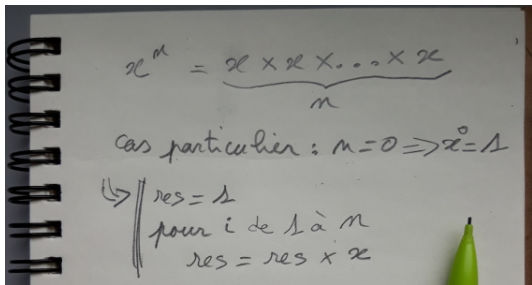 xⁿ = x × x × . . . × x
n
cas particulier : n = 0 => x⁰ = 1
↳ res = 1
pour i de 1 à n
res = res × x